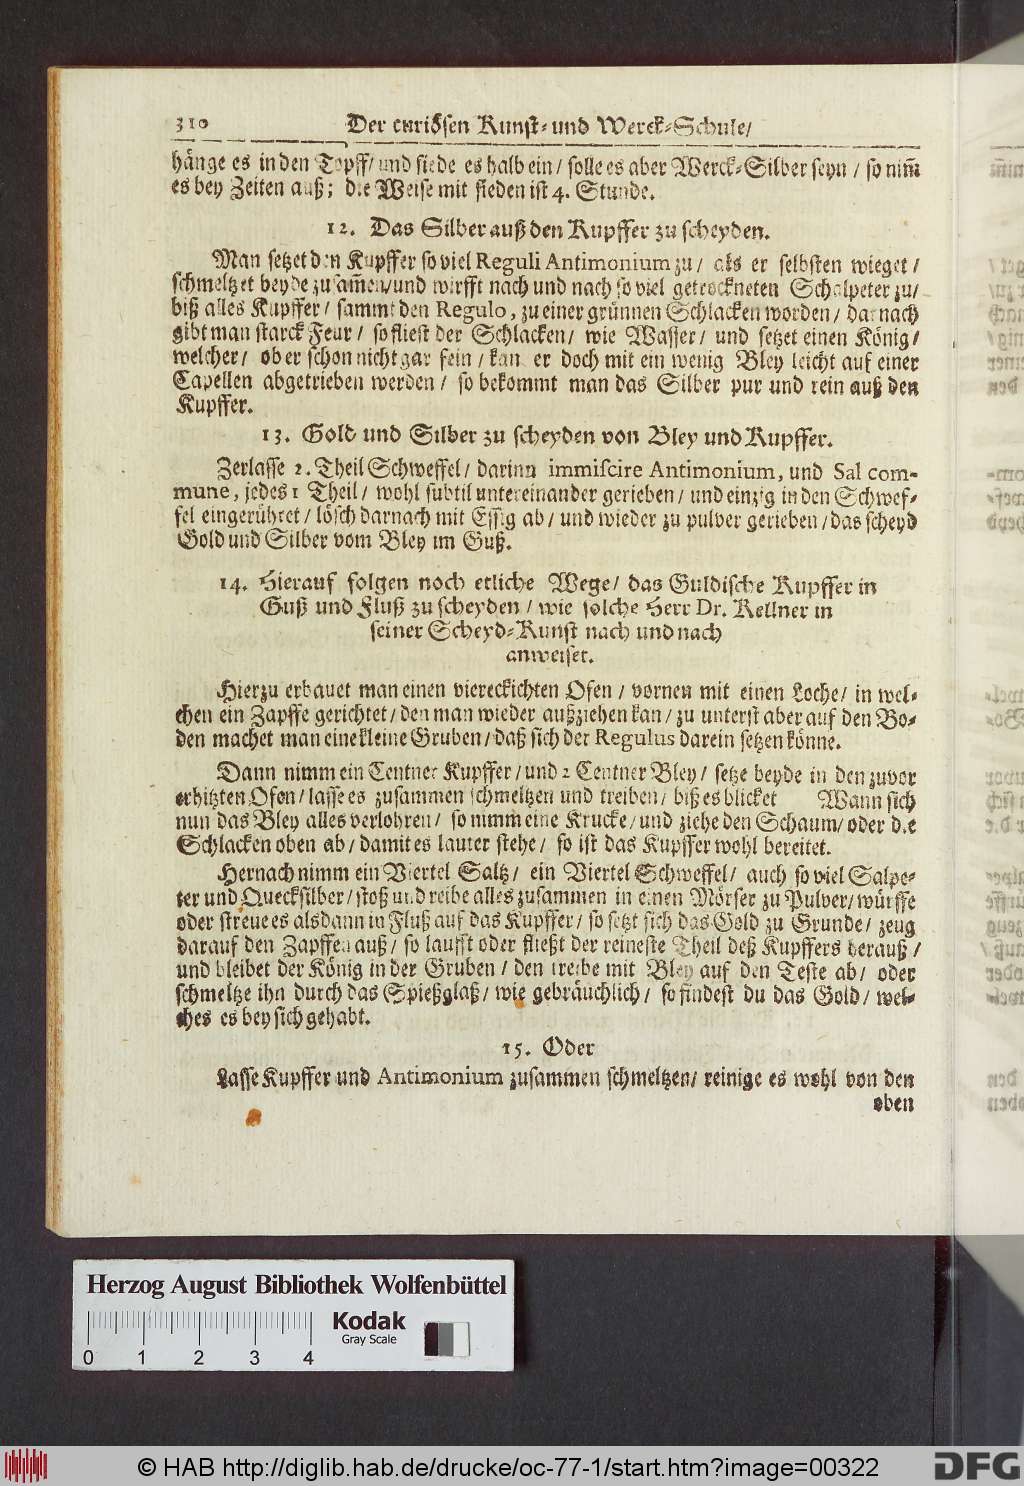 310 Der curiösen Kunst- und Werck-Schule/
hänge es in den Topff/ und siede es halb ein/ solle es aber Werck-Silber seyn/ so nim̃
es bey Zeiten auß; die Weise mit sieden ist 4. Stunde.
12. Das Silber auß den Kupffer zu scheyden.
Man setzet den Kupffer so viel Reguli Antimonium zu/ als er selbsten wieget/
schmeltzet beyde zusam̃en/ und wirfft nach und nach so viel getrockneten Schalpeter zu/
biß alles Kupffer/ sammt den Regulo, zu einer grünnen Schlacken worden/ darnach
gibt man starck Feur/ so fliest der Schlacken/ wie Wasser/ und setzet einen König/
welcher/ ob er schon nicht gar fein/ kan er doch mit ein wenig Bley leicht auf einer
Capellen abgetrieben werden/ so bekommt man das Silber pur und rein auß den
Kupffer.
13. Gold und Silber zu scheyden von Bley und Kupffer.
Zerlasse 2. Theil Schweffel/ darinn immiscire Antimonium, und Sal com-
mune, jedes 1 Theil/ wohl subtil untereinander gerieben/ und einzig in den Schwef-
fel eingerühret/ lösch darnach mit Essig ab/ und wieder zu pulver gerieben/ das scheyd
Gold und Silber vom Bley im Guß.
14. Hierauf folgen noch etliche Wege/ das Guldische Kupffer in
Guß und Fluß zu scheyden/ wie solche Herr Dr. Kellner in
seiner Scheyd-Kunst nach und nach
anweiset.
Hierzu erbauet man einen viereckichten Ofen/ vornen mit einen Loche/ in wel-
chen ein Zapffe gerichtet/ den man wieder außziehen kan/ zu unterst aber auf den Bo-
den machet man eine kleine Gruben/ daß sich der Regulus darein setzen könne.
Dann nimm ein Centner Kupffer/ und 2 Centner Bley/ setze beyde in den zuvor
erhitzten Ofen/ lasse es zusammen schmeltzen und treiben/ biß es blicket Wann sich
nun das Bley alles verlohren/ so nimm eine Krucke/ und ziehe den Schaum/ oder die
Schlacken oben ab/ damit es lauter stehe/ so ist das Kupffer wohl bereitet.
Hernach nimm ein Viertel Saltz/ ein Viertel Schweffel/ auch so viel Salpe-
ter und Quecksilber/ stoß und reibe alles zusammen in einen Mörser zu Pulver/ würffe
oder streue es alsdann in Fluß auf das Kupffer/ so setzt sich das Gold zu Grunde/ zeug
darauf den Zapffen auß/ so laufft oder fließt der reineste Theil deß Kupffers herauß/
und bleibet der König in der Gruben/ den treibe mit Bley auf den Teste ab/ oder
schmeltze ihn durch das Spießglaß/ wie gebräuchlich/ so findest du das Gold/ wel-
ches es bey sich gehabt.
15. Oder
Lasse Kupffer und Antimonium zusammen schmeltzen/ reinige es wohl von den
oben
Herzog August Bibliothek Wolfenbüttel
Kodak
Gray Scale
0 1 2 3 4
© HAB http://diglib.hab.de/drucke/oc-77-1/start.htm?image=00322
DFG